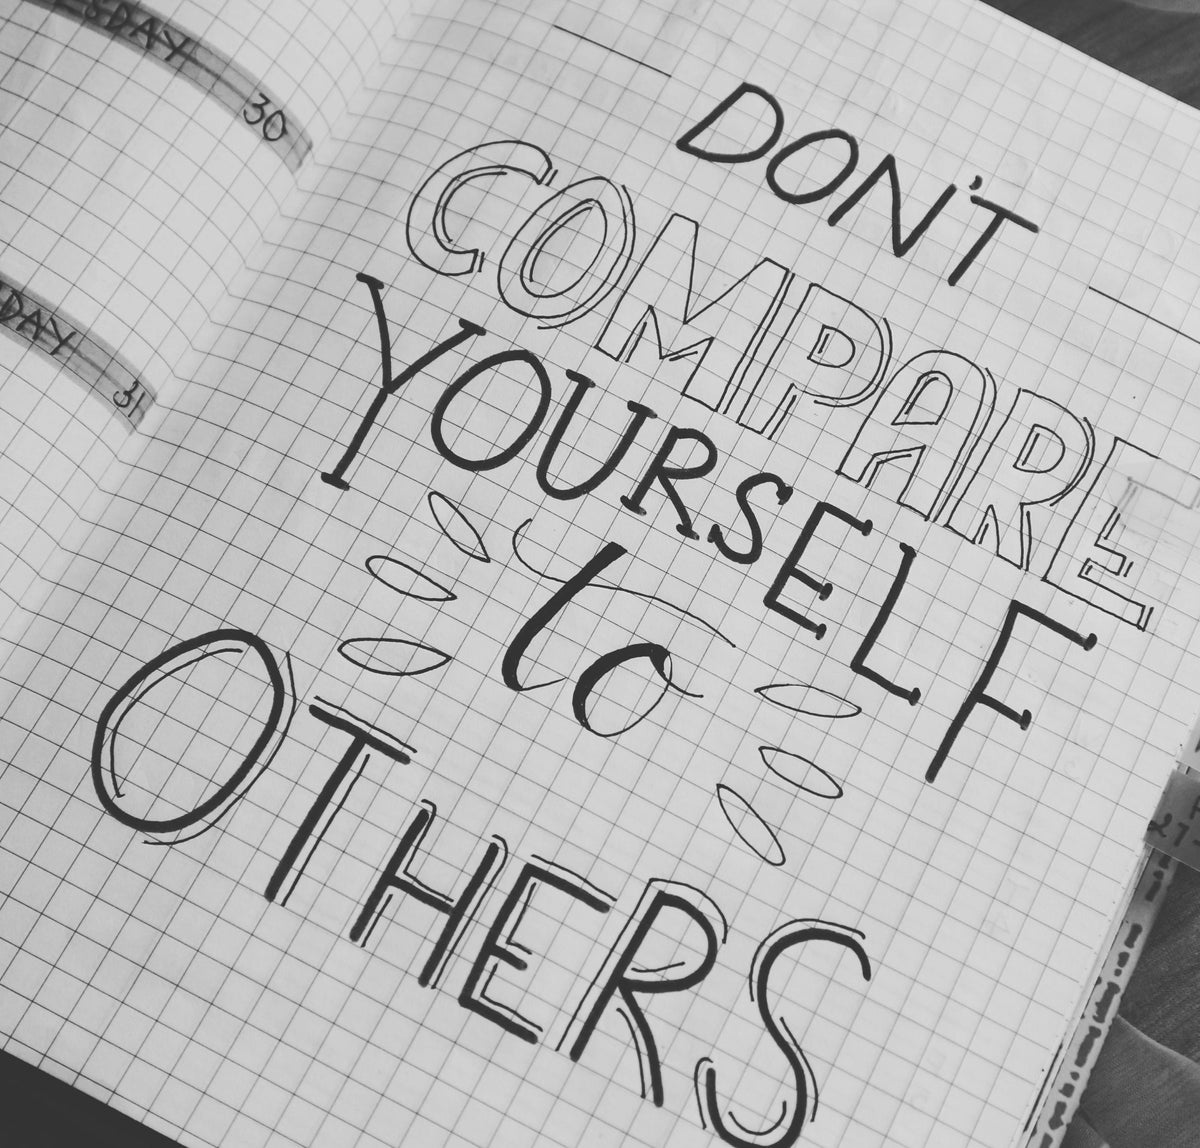 30
DAY
31
DON'T
COMPARE
YOURSELF
to
OTHERS